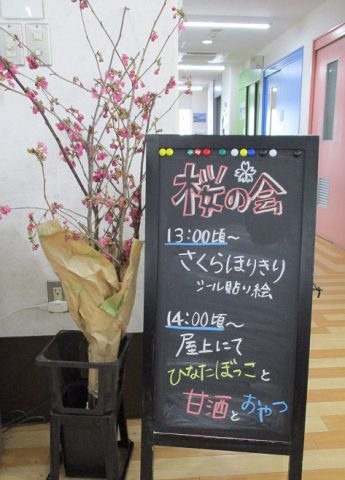 桜の会
13:00頃〜
さくらほりきり
シール貼り絵
14:00頃〜
屋上にて
ひなたぼっこと
甘酒とおやつ